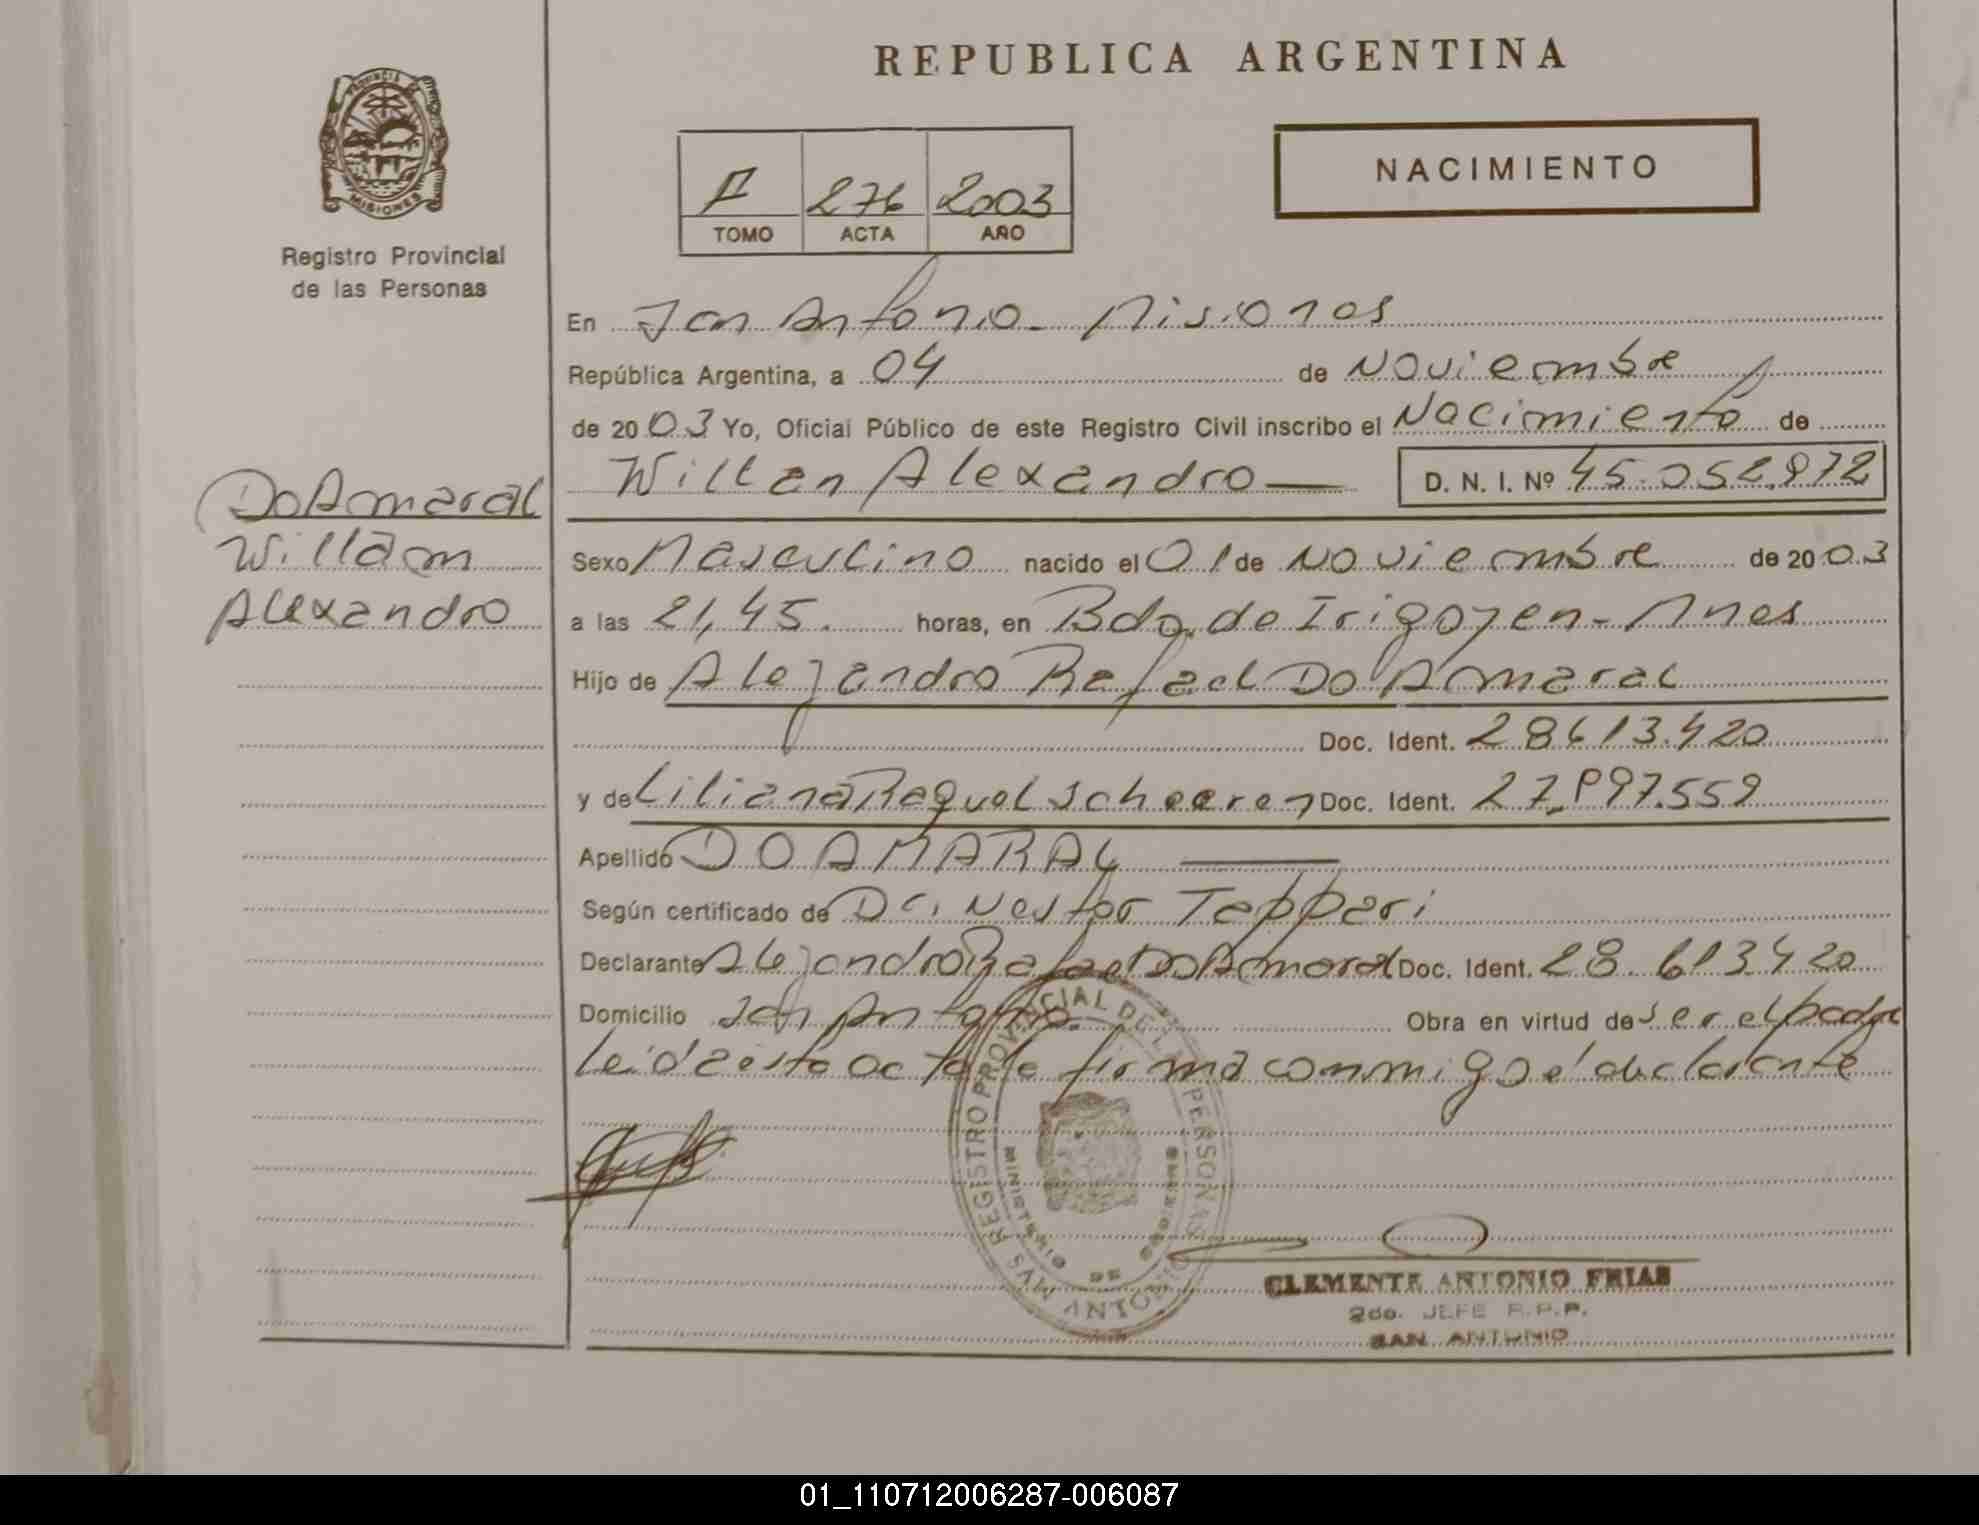 REPUBLICA ARGENTINA
PROVINCIA DE
MISIONES
Registro Provincial
de las Personas
276 2003
TOMO ACTA AÑO
NACIMIENTO
En San Antonio - Misiones
República Argentina, a 04 de Noviembre
de 2003 Yo, Oficial Público de este Registro Civil inscribo el Nacimiento de
Willan Alexandro D. N. I. Nº 45.052.972
Do Amaral
Willam
Alexandro
Sexo Masculino nacido el 01 de Noviembre de 2003
a las 21,45. horas, en Bdo. de Irigoyen - Mnes
Hijo de Alejandro Rafael Do Amaral
Doc. Ident. 28613.420
y de Liliana Raquel Scheeren Doc. Ident. 27.997.559
Apellido DO AMARAL
Según certificado de Dr. Nestor Tappari
Declarante Alejandro Rafael Do Amaral Doc. Ident. 28.613.420
Domicilio San Antonio. Obra en virtud de ser el padre
Leida esta acta la firma conmigo el declarante
REGISTRO PROVINCIAL DE LAS PERSONAS
MINISTERIO DE GOBIERNO
ANTONIO
CLEMENTE ANTONIO FRIAS
2do. JEFE R.P.P.
SAN ANTONIO
01_110712006287-006087